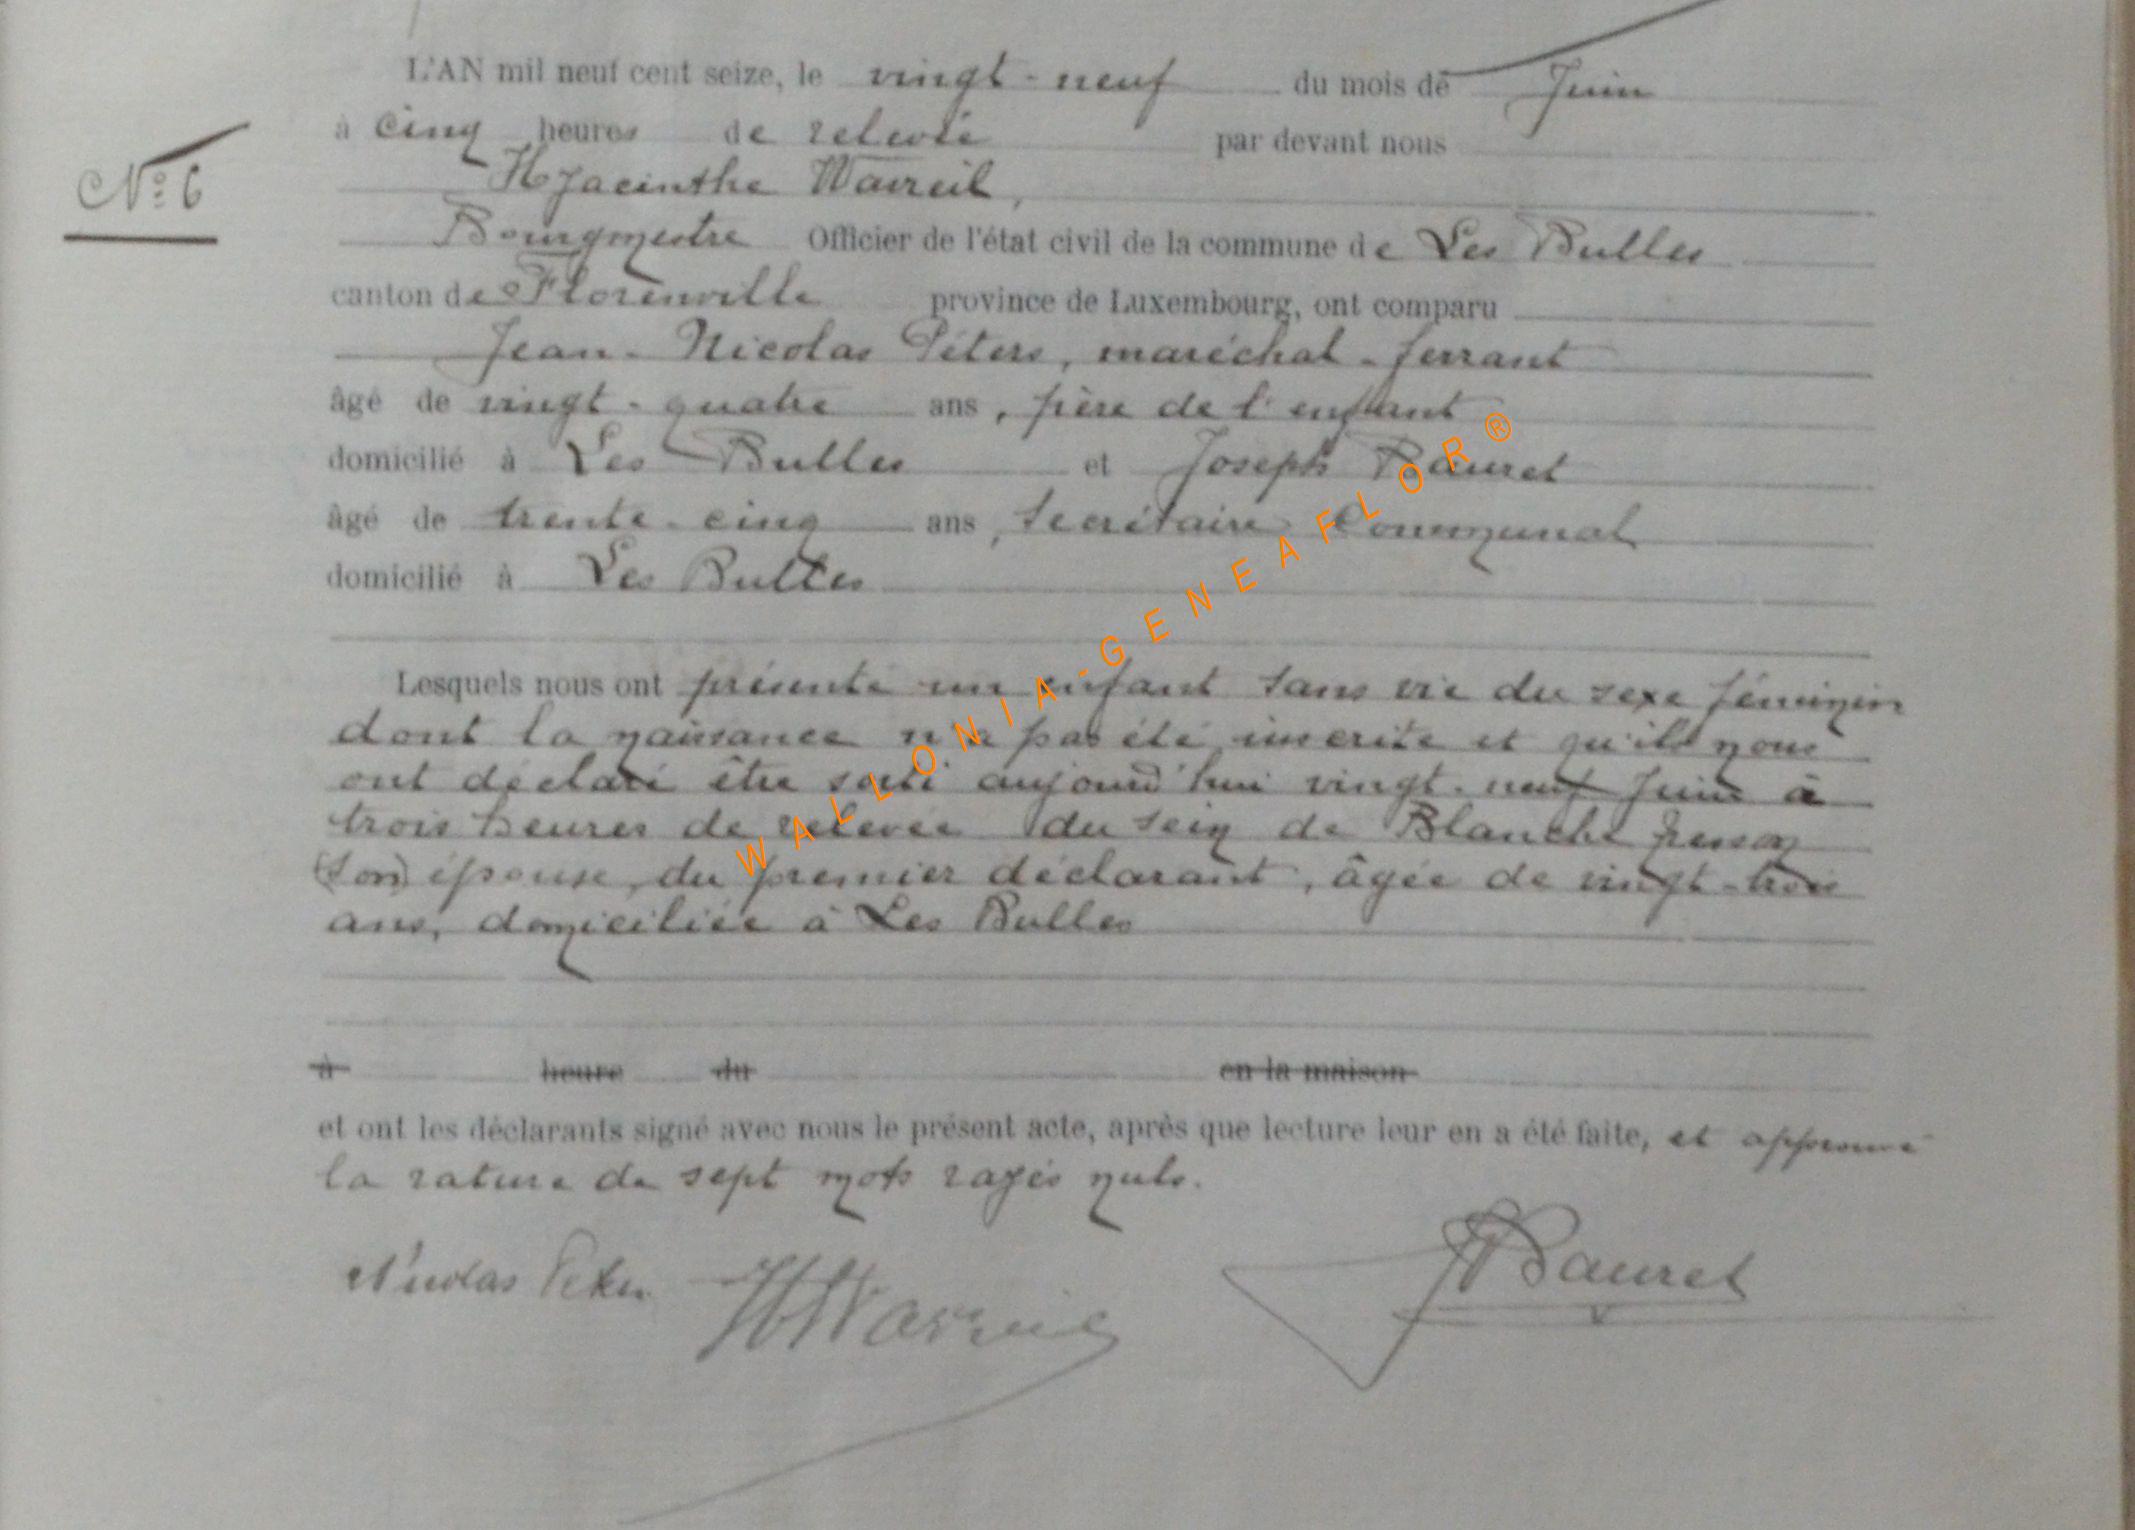 L'AN mil neuf cent seize, le vingt-neuf du mois de Juin
à cinq heures de relevée par devant nous
N° 6
Hyacinthe Wavreil,
Bourgmestre Officier de l'état civil de la commune de Les Bulles
canton de Florenville province de Luxembourg, ont comparu
Jean-Nicolas Péters, maréchal-ferrant
âgé de vingt-quatre ans, père de l'enfant
domicilié à Les Bulles et Joseph Bauret
âgé de trente-cinq ans, Secrétaire Communal
domicilié à Les Bulles
Lesquels nous ont présenté un enfant sans vie du sexe féminin
dont la naissance n'a pas été inscrite et qu'ils nous
ont déclaré être sorti aujourd'hui vingt-neuf Juin à
trois heures de relevée du sein de Blanche
(son) épouse, du premier déclarant, âgée de vingt-trois
ans, domiciliée à Les Bulles
à heure du en la maison
et ont les déclarants signé avec nous le présent acte, après que lecture leur en a été faite, et approuvé
la rature de sept mots rayés nuls.
Nicolas Peters
J Bauret
WALLONIA-GENEAFLOR®